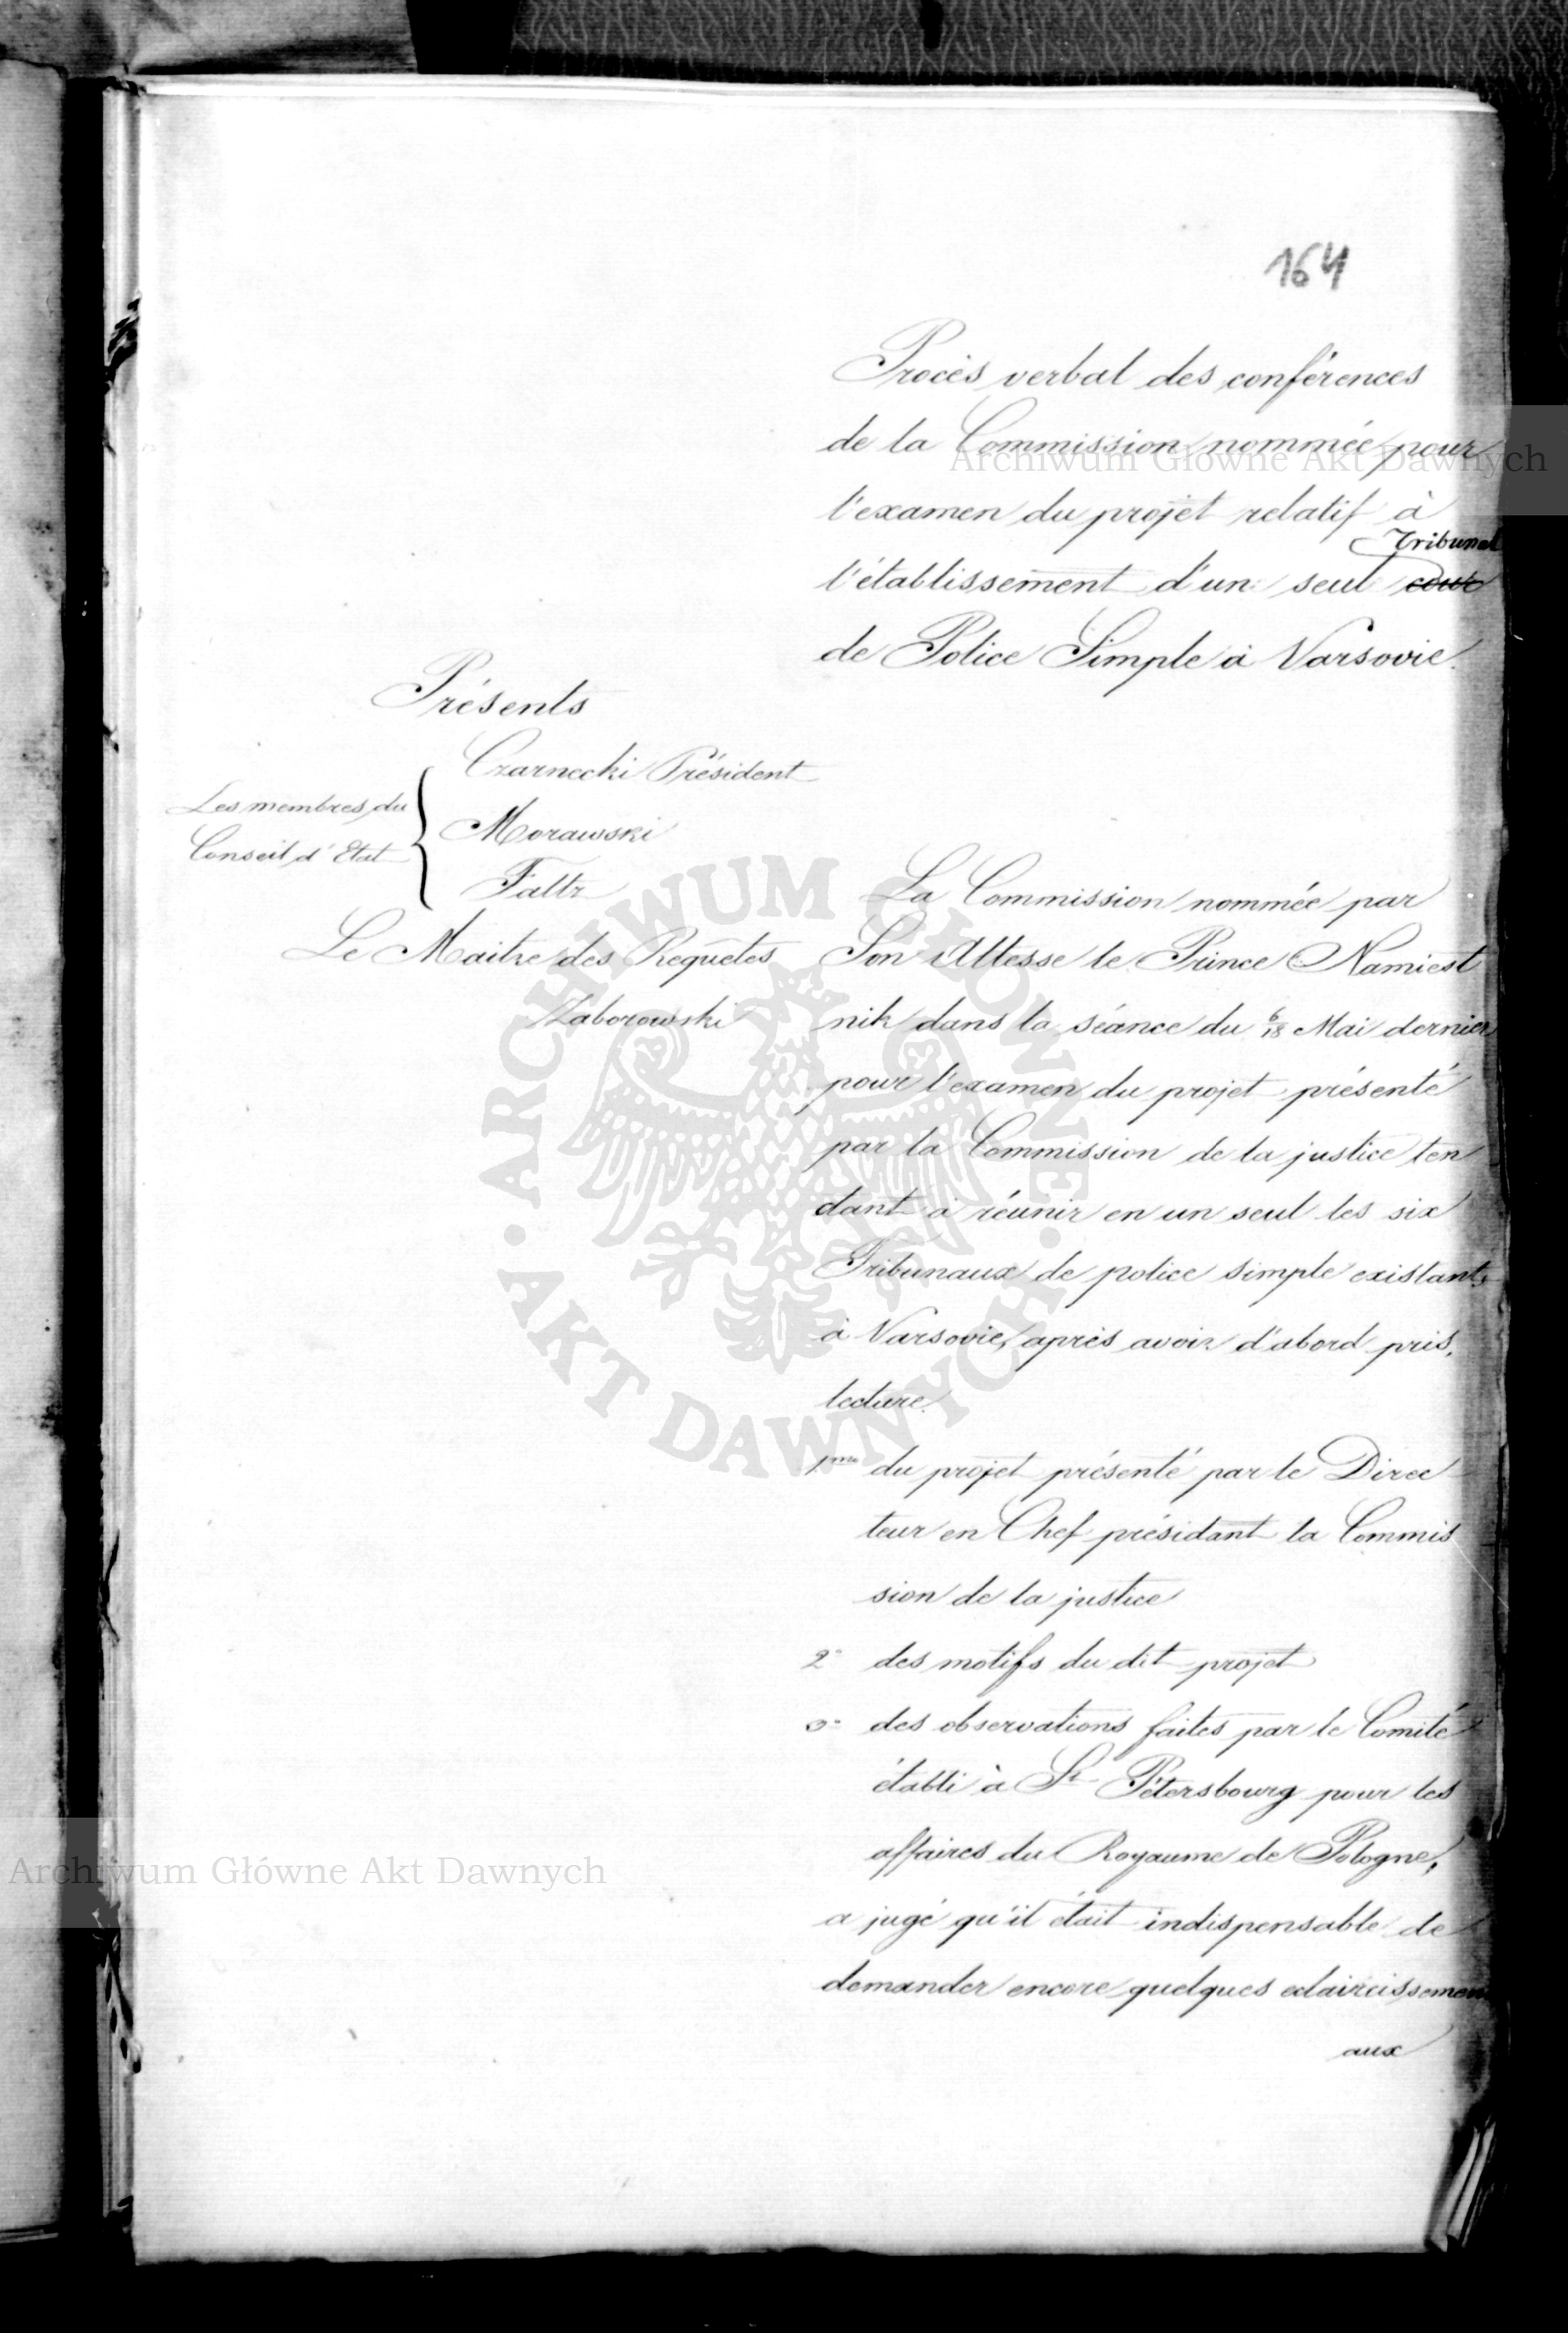 164
Procès verbal des conférences
de la Commission nommée pour
l'examen du projet relatif à
Tribunal
l'établissement d'un seul cour
de Police Simple à Varsovie.
Présents
Les membres du
Conseil d'Etat
Czarnecki Président
Morawski
Faltz
Le Maitre des Requêtes
Zaborowski
La Commission nommée par
Son Altesse le Prince Namiest
nik dans la séance du 6/18 Mai dernier
pour l'examen du projet présenté
par la Commission de la justice ten
dant à réunir en un seul les six
Tribunaux de police simple existants
à Varsovie, après avoir d'abord pris,
lecture.
1mo du projet présenté par le Direc
teur en Chef présidant la Commis
sion de la justice
2° des motifs du dit projet
3° des observations faites par le Comité
établi à St Pétersbourg pour les
affaires du Royaume de Pologne,
a jugé qu'il était indispensable de
demander encore quelques eclaircissemens
aux
Archiwum Główne Akt Dawnych
ARCHIWUM GŁÓWNE
AKT DAWNYCH
Archiwum Główne Akt Dawnych